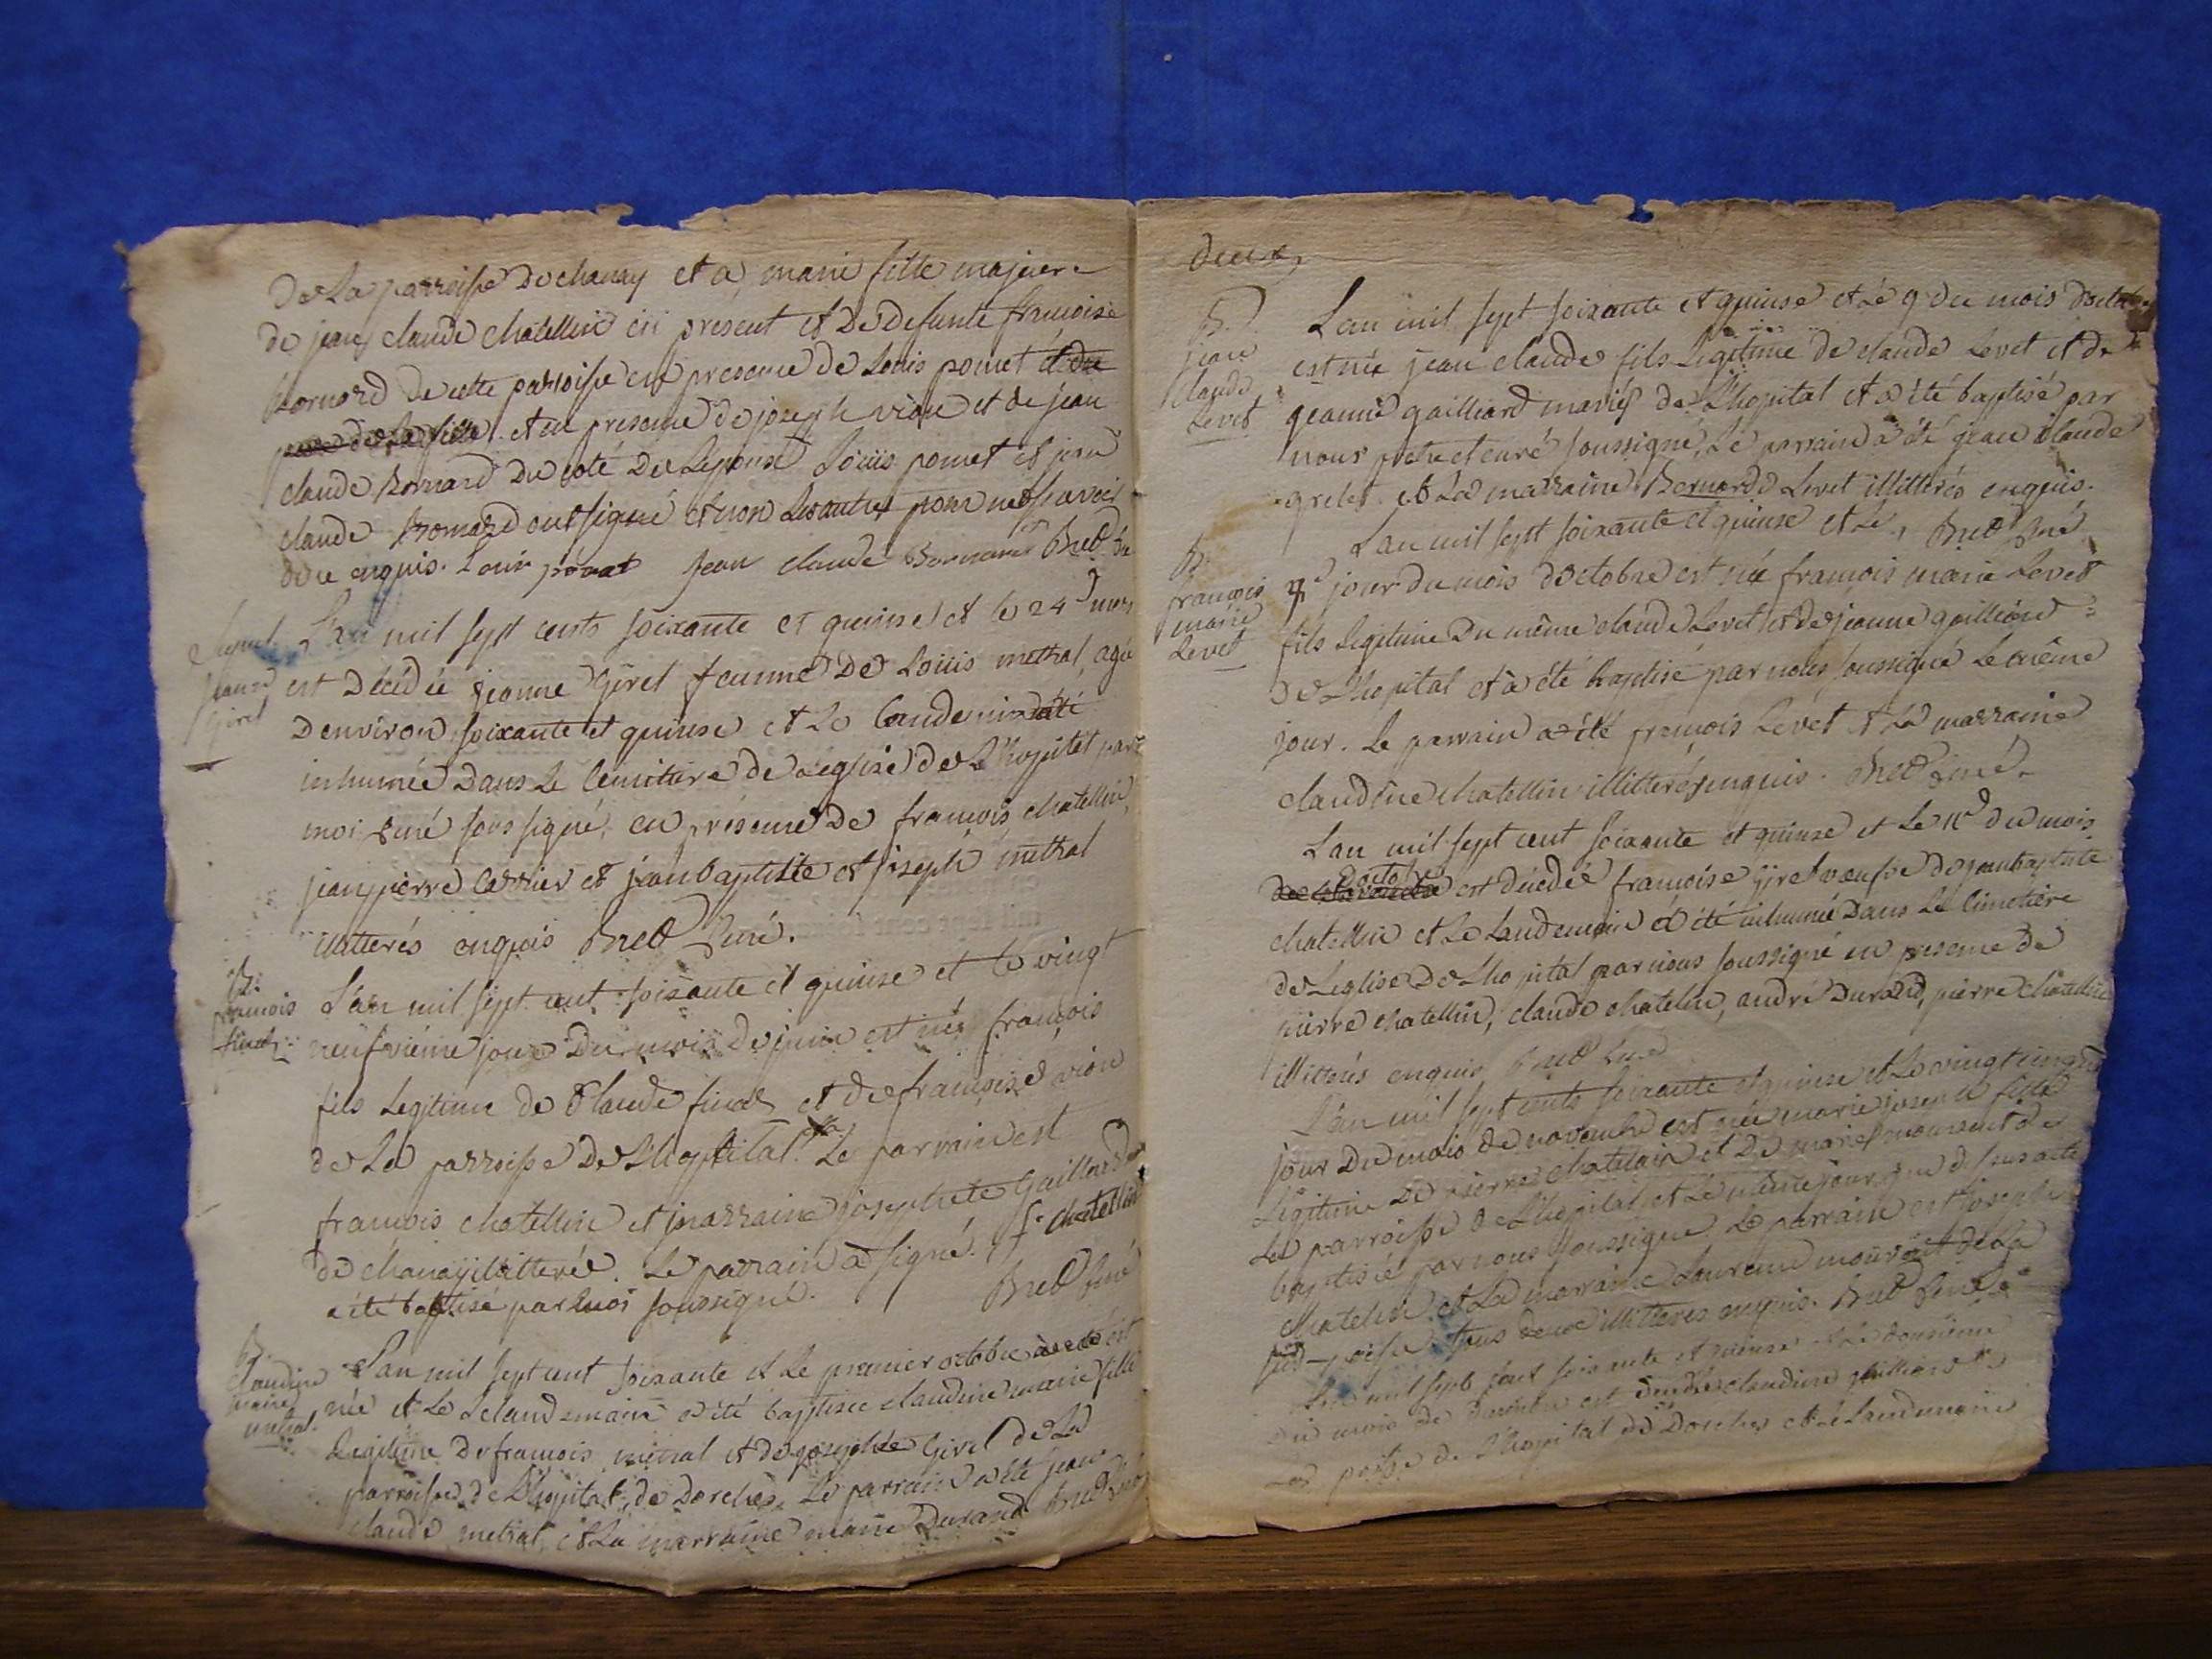 de La parroisse de chanay et a marie fille majeure
de jean claude chatellin ici present et De defunte francoise
Bornard de cette parroisse en presence de Louis pomet et du
pere de la fille et en presence de joseph vion et de jean
claude Bornard Du coté De Lepouse Louis pomet et jean
claude Bornard ont signé et non Les autres pour ne scavoir
de ce enquis. Louis pomet Jean claude Bornard Bred Curé
Sepult.
jeanne
Girel
L'an mil sept cents soixante et quinse et le 24 mars
est Décédée jeanne Girel femme De Louis metral, agée
D'environ soixante et quinse et Le Landemin a été
inhumée Dans Le Cemitiere de Leglise de L'hopital par
moi curé sous signé, en présence De francois chatellin,
jean pierre Carrier et jean baptiste et joseph metral
illitterés enquis Bred Curé.
B.
francois
finet
L'an mil sept cent soixante et quinse et le vingt
neufvième jour Du mois De juin est né francois
fils Legitime de Claude finet et de francoise vion
de La parroisse De L'hopital. Le parrain est
francois chatellin et marraine josephete Gaillard
de chanay illitterée. Le parrain a signé. f. chatellin
a été baptisé par moi soussigné. Bred Curé
B.
Claudine
marie
metral
L'an mil sept cent soixante et Le premier octobre est
née et Le Lelandemain a été baptisée claudine marie fille
Legitime De francois metral et de josephte Girel de La
parroisse de L'hopital de Dorches Le parrain a été jean
claude metral, et La marraine marie Durand Bred Curé
deux
B.
jean
claude
Levet
L'an mil sept soixante et quinse et Le 9 du mois d'octobre
est née jean claude fils Legitime de claude Levet et de
jeanne gailliard mariés de L'hopital et a été baptisé par
nous pretre et curé soussigné, Le parrain a été jean claude
grelet et La marraine Bernarde Levet illitterés enquis.
Bred Curé
B.
francois
marie
Levet
L'an mil sept soixante et quinse et Le
jour du mois d'octobre est née francois marie Levet
fils Legitime Du même claude Levet et de jeanne gailliard
de L'hopital et a été baptisé par nous soussigné Le même
jour. Le parrain a été francois Levet et La marraine
claudine chatellin illitterés enquis. Bred Curé
L'an mil sept cent soixante et quinse et Le 11e du mois
d'octobre est décédée francoise girel veufve de jean baptiste
chatellin et Le Landemain a été inhumée Dans Le Cimetière
de Leglise De L'hopital par nous soussigné en presence de
pierre chatellin, claude chatelin, andré Durand, pierre chatellin
illitterés enquis Bred Curé
L'an mil sept cents soixante et quinse et Le vingt cinquè
jour Du mois de novembre est née marie joseph fille
Legitime De pierre chatelain et De marie mouront de
La parroisse de L'hopital et Le même jour que dessus a été
baptisée par nous soussigné Le parrain est joseph
chatelin et La marraine Laurence mouront de La
parroisse tous deux illitterés enquis. Bred Curé
L'an mil sept cent soixante et quinse et Le dousième
du mois de est décédée claudine gailliard
La psse de L'hopital de Dorches et Le Landemain